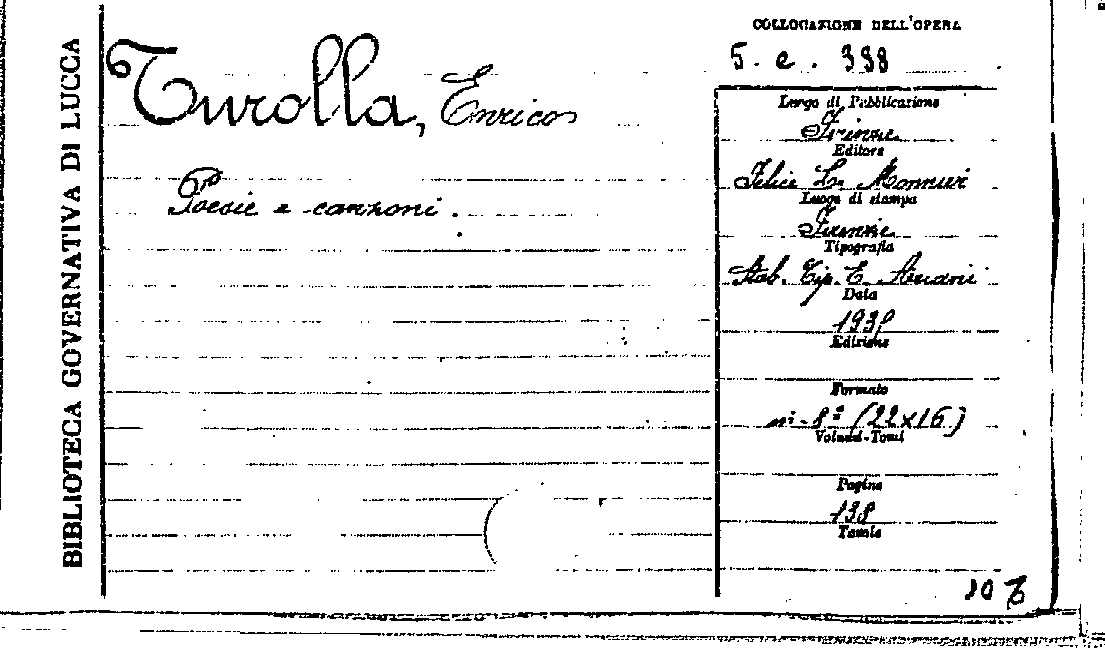 BIBLIOTECA GOVERNATIVA DI LUCCA
Turolla, Enrico
Poesie e canzoni.
COLLOCAZIONE DELL'OPERA
5. e. 398
Luogo di Pubblicazione
Firenze
Editore
Felice Le Monnier
Luogo di stampa
Firenze
Tipografia
Stab. Tip. E. Ariani
Data
1938
Edizione
Formato
in-8º (22x16)
Volumi-Tomi
Pagine
138
Tavole